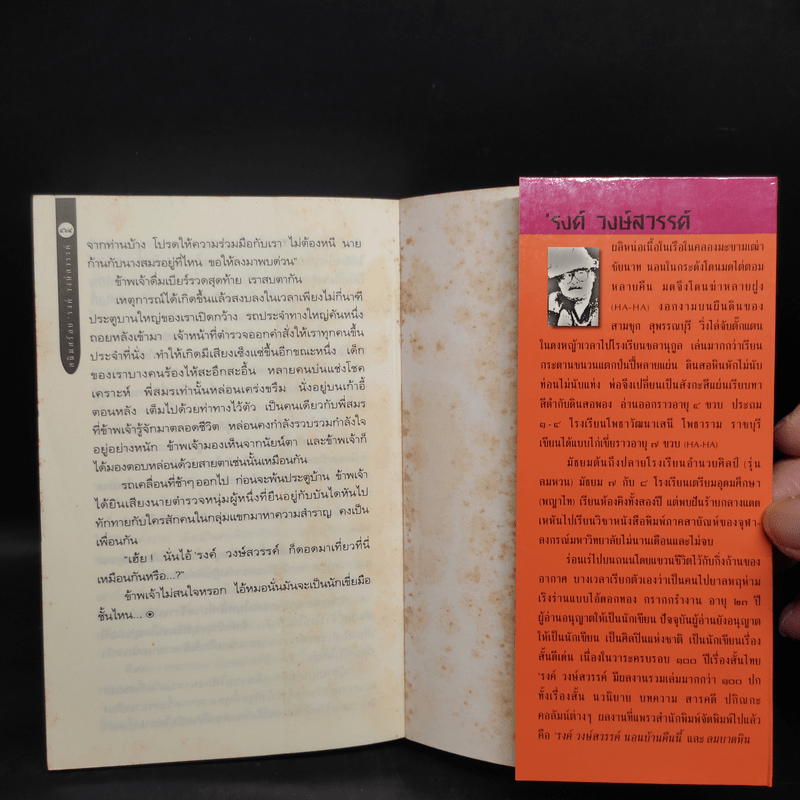 สนิมสร้อย 'รงค์ วงษ์สวรรค์
จากท่านบ้าง โปรดให้ความร่วมมือกับเรา ไม่ต้องหนี นาย
ก้านกับนางสมรอยู่ที่ไหน ขอให้ลงมาพบด่วน"
ข้าพเจ้าดื่มเบียร์รวดสุดท้าย เราสบตากัน
เหตุการณ์ได้เกิดขึ้นแล้วสงบลงในเวลาเพียงไม่กี่นาที
ประตูบานใหญ่ของเราเปิดกว้าง รถประจำทางใหญ่คันหนึ่ง
ถอยหลังเข้ามา เจ้าหน้าที่ตำรวจออกคำสั่งให้เราทุกคนขึ้น
ประจำที่นั่ง ทำให้เกิดมีเสียงเซ็งแซ่ขึ้นอีกขณะหนึ่ง เด็ก
ของเราบางคนร้องไห้สะอึกสะอื้น หลายคนบ่นแช่งโชค
เคราะห์ พี่สมรเท่านั้นหล่อนเคร่งขรึม นั่งอยู่บนเก้าอี้
ตอนหลัง เต็มไปด้วยท่าทางไว้ตัว เป็นคนเดียวกับพี่สมร
ที่ข้าพเจ้ารู้จักมาตลอดชีวิต หล่อนคงกำลังรวบรวมกำลังใจ
อยู่อย่างหนัก ข้าพเจ้ามองเห็นจากนัยน์ตา และข้าพเจ้าก็
ได้มองตอบหล่อนด้วยสายตาเช่นนั้นเหมือนกัน
รถเคลื่อนที่ช้าๆ ออกไป ก่อนจะพ้นประตูบ้าน ข้าพเจ้า
ได้ยินเสียงนายตำรวจหนุ่มผู้หนึ่งที่ยืนอยู่กับบันไดหันไป
ทักทายกับใครสักคนในกลุ่มแขกมาหาความสำราญ คงเป็น
เพื่อนกัน
"เฮ้ย ! นั่นไอ้ 'รงค์ วงษ์สวรรค์ ก็ดอดมาเที่ยวที่นี่
เหมือนกันหรือ...?"
ข้าพเจ้าไม่สนใจหรอก ไอ้หมอนั่นมันจะเป็นนักเขี่ยมือ
ชั้นไหน...
'รงค์ วงษ์สวรรค์
ยติหน่อเนื้อในเรือในคลองมะขามเฒ่า
ชัยนาท นอนในกระด้งโดนมดไต่ตอม
หลายคืน มดจึงโดนฆ่าหลายฝูง
(HA-HA) งอกงามบนยืนดินของ
สามชุก สุพรรณบุรี วิ่งไล่จับตั๊กแตน
ในดงหญ้าเวลาไปโรงเรียนขลานุกูล เล่นมากกว่าเรียน
กระดานชนวนแตกป่นปี้หลายแผ่น ดินสอหินหักไม่นับ
ท่อนไม่นับแท่ง พ่อจึงเปลี่ยนเป็นสังกะสีแผ่นเรียบทา
สีดำกับดินสอพอง อ่านออกราวอายุ ๔ ขวบ ประถม
๑-๔ โรงเรียนโพธาวัฒนาเสนี โพธาราม ราชบุรี
เขียนได้แบบไก่เขี่ยราวอายุ ๗ ขวบ (HA-HA)
มัธยมต้นถึงปลายโรงเรียนอำนวยศิลป์ (รุ่น
ลมหวน) มัธยม ๗ กับ ๘ โรงเรียนเตรียมอุดมศึกษา
(พญาไท) เรียนห้องคิงทั้งสองปี แต่พบฝันร้ายกลางแดด
เหหันไปเรียนวิชาหนังสือพิมพ์ภาคสายัณห์ของจุฬา-
ลงกรณ์มหาวิทยาลัยไม่นานเดือนและไม่จบ
ร่อนเร่ไปบนถนนโดยแขวนชีวิตไว้กับกิ่งก้านของ
อากาศ บางเวลาเรียกตัวเองว่าเป็นคนไปบาลพฤห่าม
เริงร่านแบบไอ้ดอกทอง กรากกรำงาน อายุ ๒๓ ปี
ผู้อ่านอนุญาตให้เป็นนักเขียน ปัจจุบันผู้อ่านยังอนุญาต
ให้เป็นนักเขียน เป็นศิลปินแห่งชาติ เป็นนักเขียนเรื่อง
สั้นดีเด่น เนื่องในวาระครบรอบ ๑๐๐ ปีเรื่องสั้นไทย
'รงค์ วงษ์สวรรค์ มีผลงานรวมเล่มมากกว่า ๑๐๐ ปก
ทั้งเรื่องสั้น นวนิยาย บทความ สารคดี ปกิณกะ
คอลัมน์ต่างๆ ผลงานที่แพรวสำนักพิมพ์จัดพิมพ์ไปแล้ว
คือ 'รงค์ วงษ์สวรรค์ นอนบ้านคืนนี้ และ ลมบาดหิน